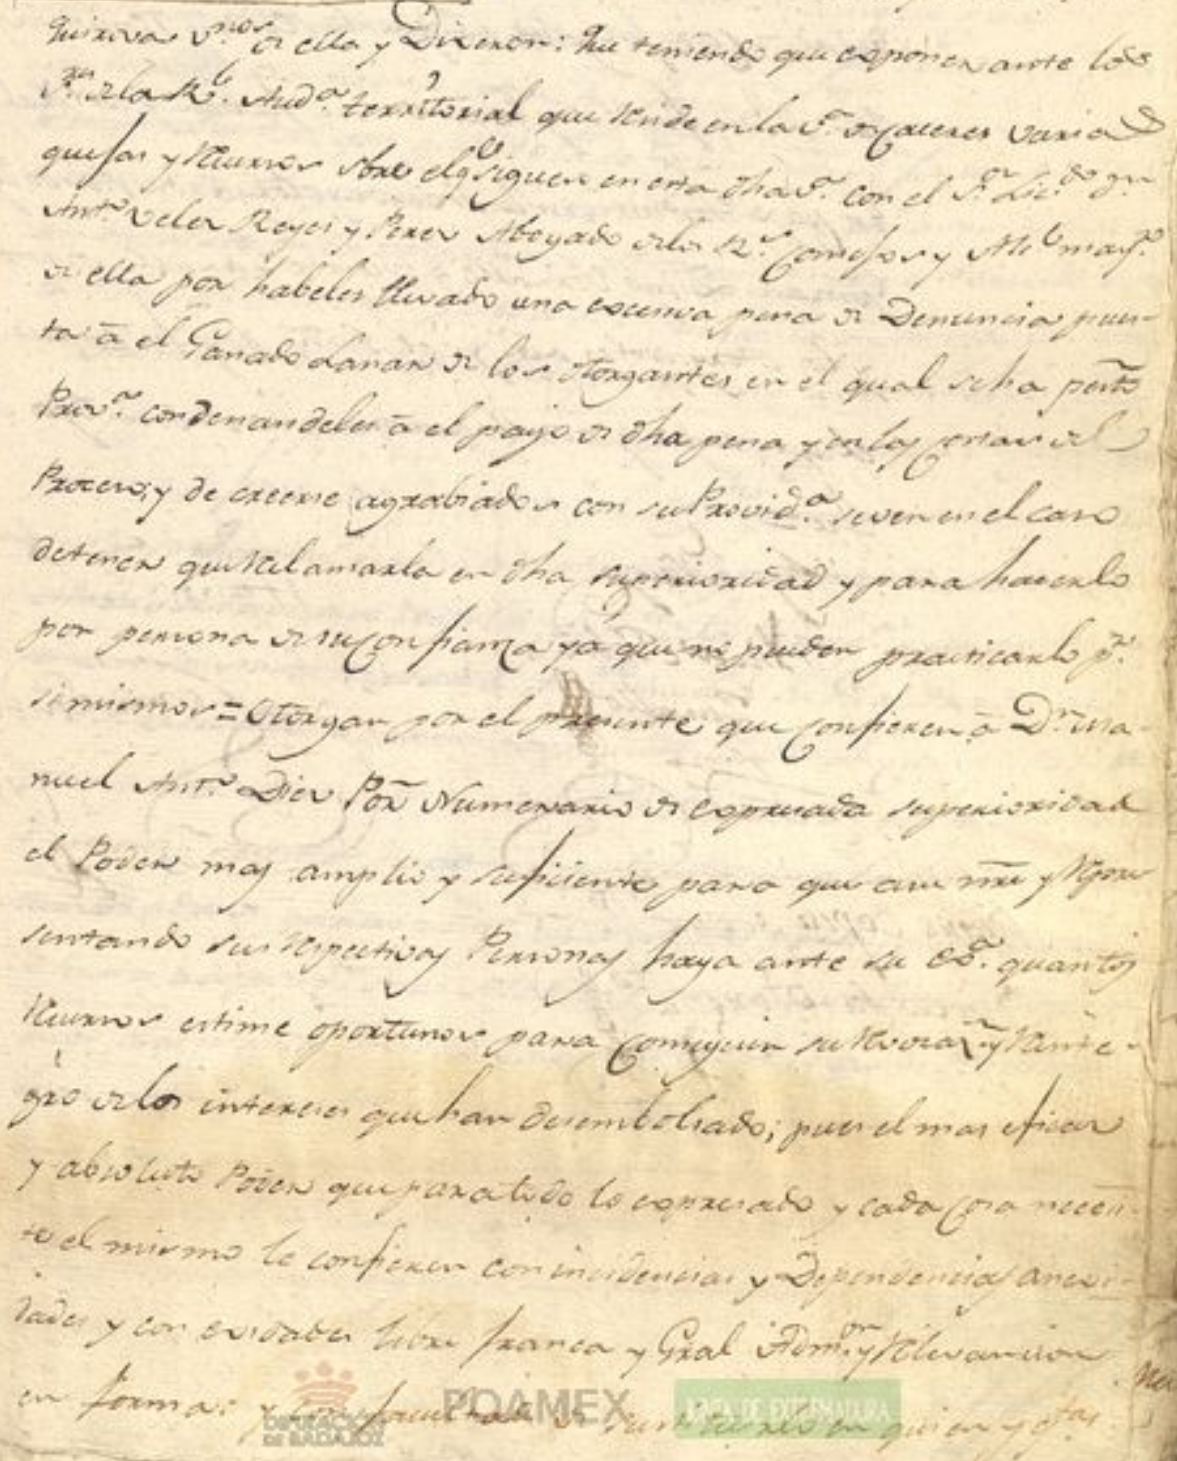 vnos de ella y Dixeron: Que teniendo que exponer ante los
Sres de la Rl. Auda. territorial que reside en la Va. de Caceres varias
quejas y recursos sobre el q.e siguen en esta dha Va. con el Sr. Licdo Dn
Anto Velez Reyes y Perez Abogado de los Rs. Consejos y Alce mayr.
de ella por haberles llevado una excesiva pena de Denuncia pues-
ta á el Ganado Lanar de los otorgantes en el qual se ha
Prova. condenandoles á el pago de dha pena y en las costas del
Proceso; y de creerse agrabiados con su Provida. se ven en el caso
de tener que reclamarla en dha superioridad y para hacerlo
por persona de su confianza ya que no pueden practicarlo pr.
si mismos = Otorgan por el presente que confieren á Dn Ma-
nuel Anto Diez Por Numerario de expresada superioridad
el Poder mas amplio y suficiente para que a su nre y repre-
sentando sus respectivas Personas haga ante su Exa. quantos
recursos estime oportunos para conseguir su revocazn y reinte-
gro de los intereses que han desembolsado; pues el mas eficaz
y absoluto Poder que para todo lo expresado y cada cosa necesi-
te el mismo le confieren con incidencias y Dependencias anexi-
dades y conexidades libre franca y Gral Admon y relevacion
en forma: y con facultad de sustituirlo en quien y
DIPUTACIÓN DE BADAJOZ
POAMEX
JUNTA DE EXTREMADURA